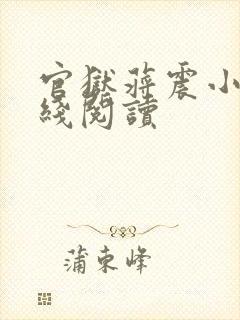 官獄蔣震小
綫閱讀
蒲束峰